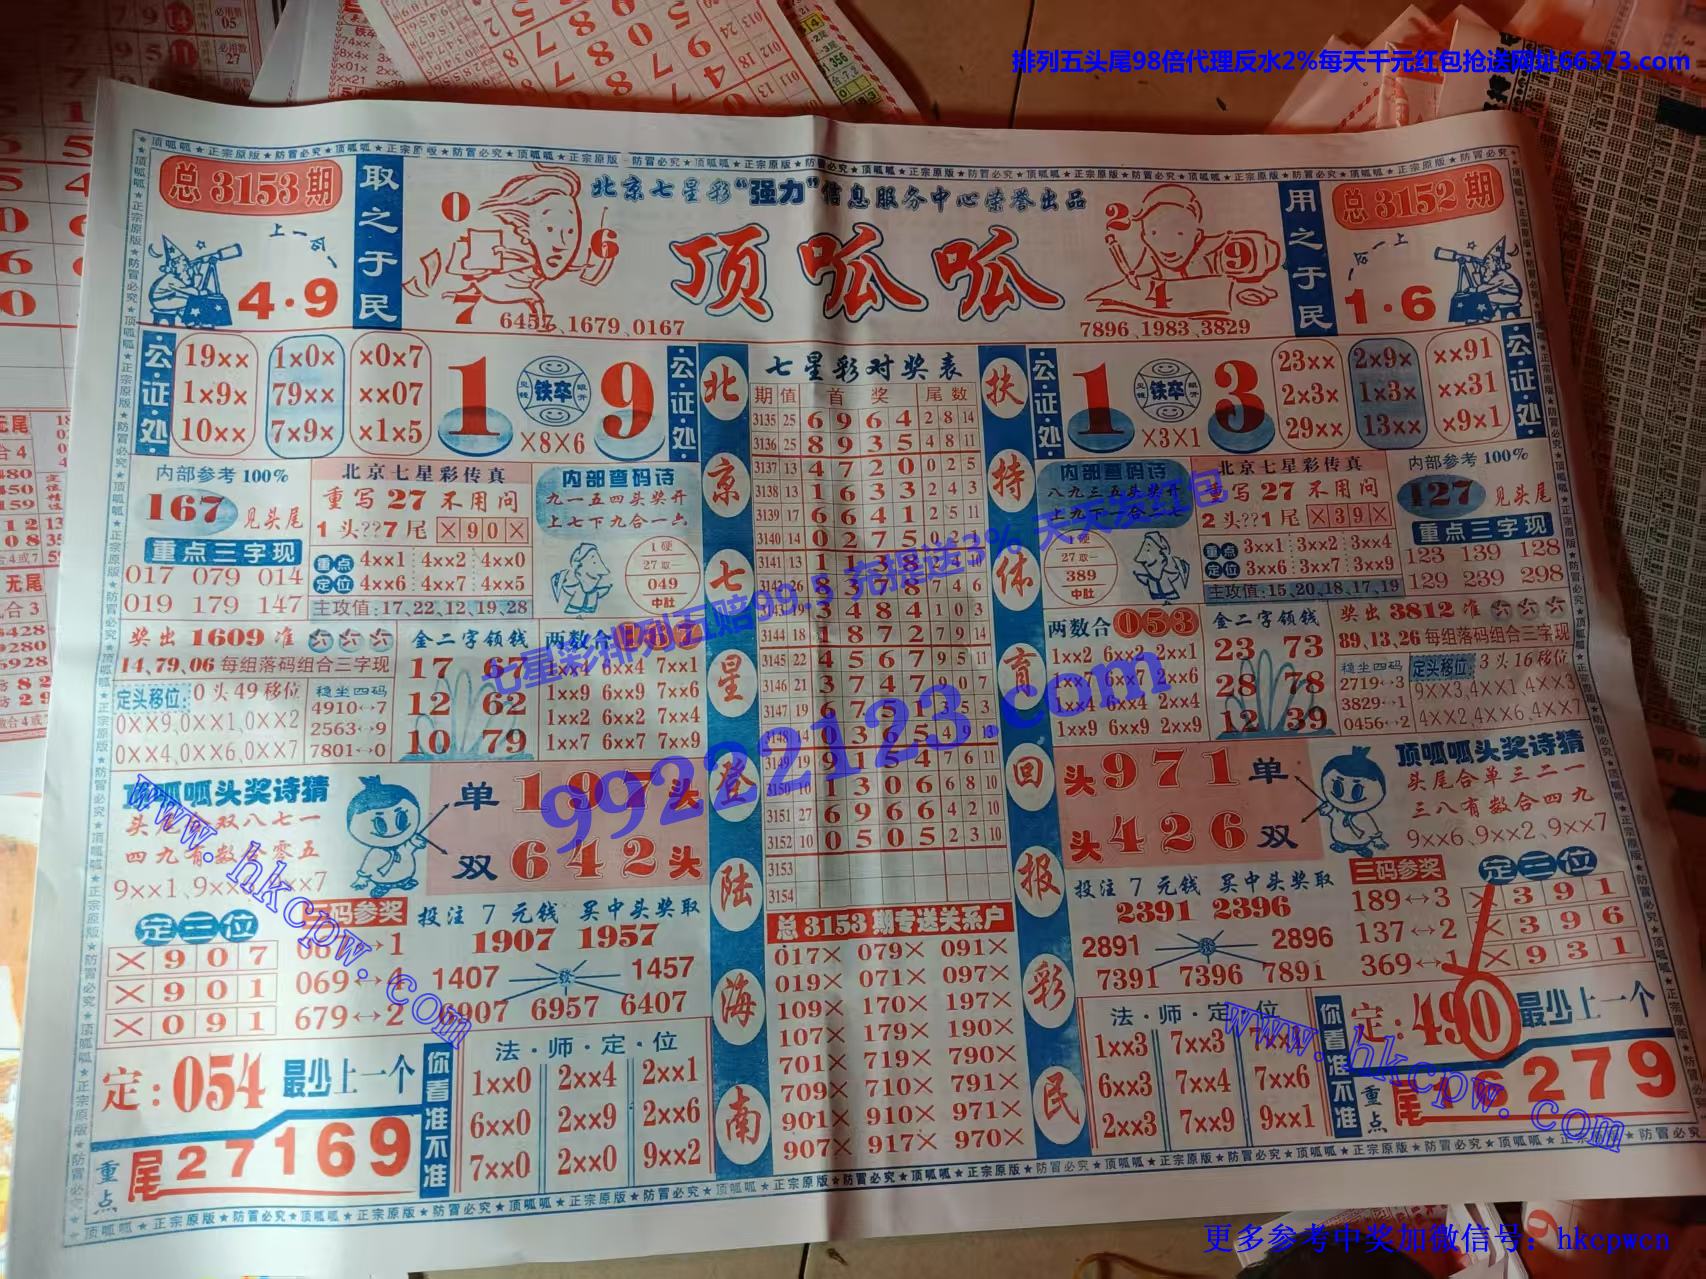 排列五头尾98倍代理反水2%每天千元红包抢送网址66373.com
总3153期
取之于民
北京七星彩“强力”信息服务中心荣誉出品
用之于民
总3152期
顶呱呱
0 6 7
2 9 4
4·9
1·6
6457、1679、0167
7896、1983、3829
公证处
19×× 1×0× ×0×7
1×9× 79×× ××07
10×× 7×9× ×1×5
1 铁卒 9
×8×6
公证处
内部参考100%
167 见头尾
重点三字现
017 079 014
019 179 147
北京七星彩传真
重写27不用问
1头??7尾 ×90×
重点定位
4××1 4××2 4××0
4××6 4××7 4××5
主攻值:17、22、12、19、28
内部查码诗
九一五四头奖开
上七下九合一六
1硬
27取一
049
中肚
奖出1609准
14、79、06每组落码组合三字现
定头移位: 0头49移位
0××9、0××1、0××2
0××4、0××6、0××7
稳坐四码
4910↔7
2563↔9
7801↔0
金二字领钱
17 67
12 62
10 79
两数合 167
1××4 6××4 7××1
1××9 6××9 7××6
1××2 6××2 7××4
1××7 6××7 7××9
顶呱呱头奖诗猜
四九有数合零五
单197头
双642头
定三位
×907
×901
×091
三码参奖
069↔4
679↔2
投注7元钱 买中头奖取
1907 1957
1407 1457
6907 6957 6407
定:054 最少上一个
重点 尾27169
你看准不准
法·师·定·位
1××0 2××4 2××1
6××0 2××9 2××6
7××0 2××0 9××2
北京七星登陆海南
七星彩对奖表
期 值 首奖 尾数
3135 25 6964 2 8 14
3136 25 8935 4 8 11
3137 13 4720 0 2 5
3138 13 1633 2 4 3
3139 17 6641 2 5 11
3140 14 0275
3141 13
3144 18 1872 7 9 14
3145 22 4567 9 5 11
3146 21 3747 9 0 7
3147 19 6751
3148 14 0365 4 9 13
3149 19 9154 7 6 11
3150 10 1306 6 8 10
3151 27 6966 4 2 10
3152 10 0505 2 3 10
3153
3154
总3153期专送关系户
017× 079× 091×
019× 071× 097×
109× 170× 197×
107× 179× 190×
701× 719× 790×
709× 710× 791×
901× 910× 971×
907× 917× 970×
扶持体育回报彩民
公证处
1 铁卒 3
×3×1
23×× 2×9× ××91
2×3× 1×3× ××31
29×× 13×× ×9×1
公证处
内部查码诗
八九三五头奖开
上九下一合二七
1硬
27取一
389
中肚
北京七星彩传真
重写27不用问
2头??1尾 ×39×
重点定位
3××1 3××2 3××4
3××6 3××7 3××9
主攻值:15、20、18、17、19
内部参考100%
127 见头尾
重点三字现
123 139 128
129 239 298
两数合 053
1××2 6××2 2××1
1××7 6××7 2××6
1××4 6××4 2××4
1××9 6××9 2××9
金二字领钱
23 73
28 78
12 39
奖出3812准
89、13、26每组落码组合三字现
稳坐四码
2719↔3
3829↔1
0456↔2
定头移位: 3头16移位
9××3、4××1、4××3
4××2、4××6、4××7
头971单
头426双
顶呱呱头奖诗猜
头尾合单三二一
三八有数合四九
9××6、9××2、9××7
投注7元钱 买中头奖取
2391 2396
2891 2896
7391 7396 7891
三码参奖
189↔3
137↔2
369↔1
定三位
×391
×396
×931
法·师·定·位
1××3 7××3
6××3 7××4 7××6
2××3 7××9 9××1
你看准不准
定:490 最少上一个
重点 尾16279
七星彩排列五赔99.9 充值送3% 天天送红包
99222123.com
www.hkcpw.com
www.hkcpw.com
更多参考中奖加微信号：hkcpwcn